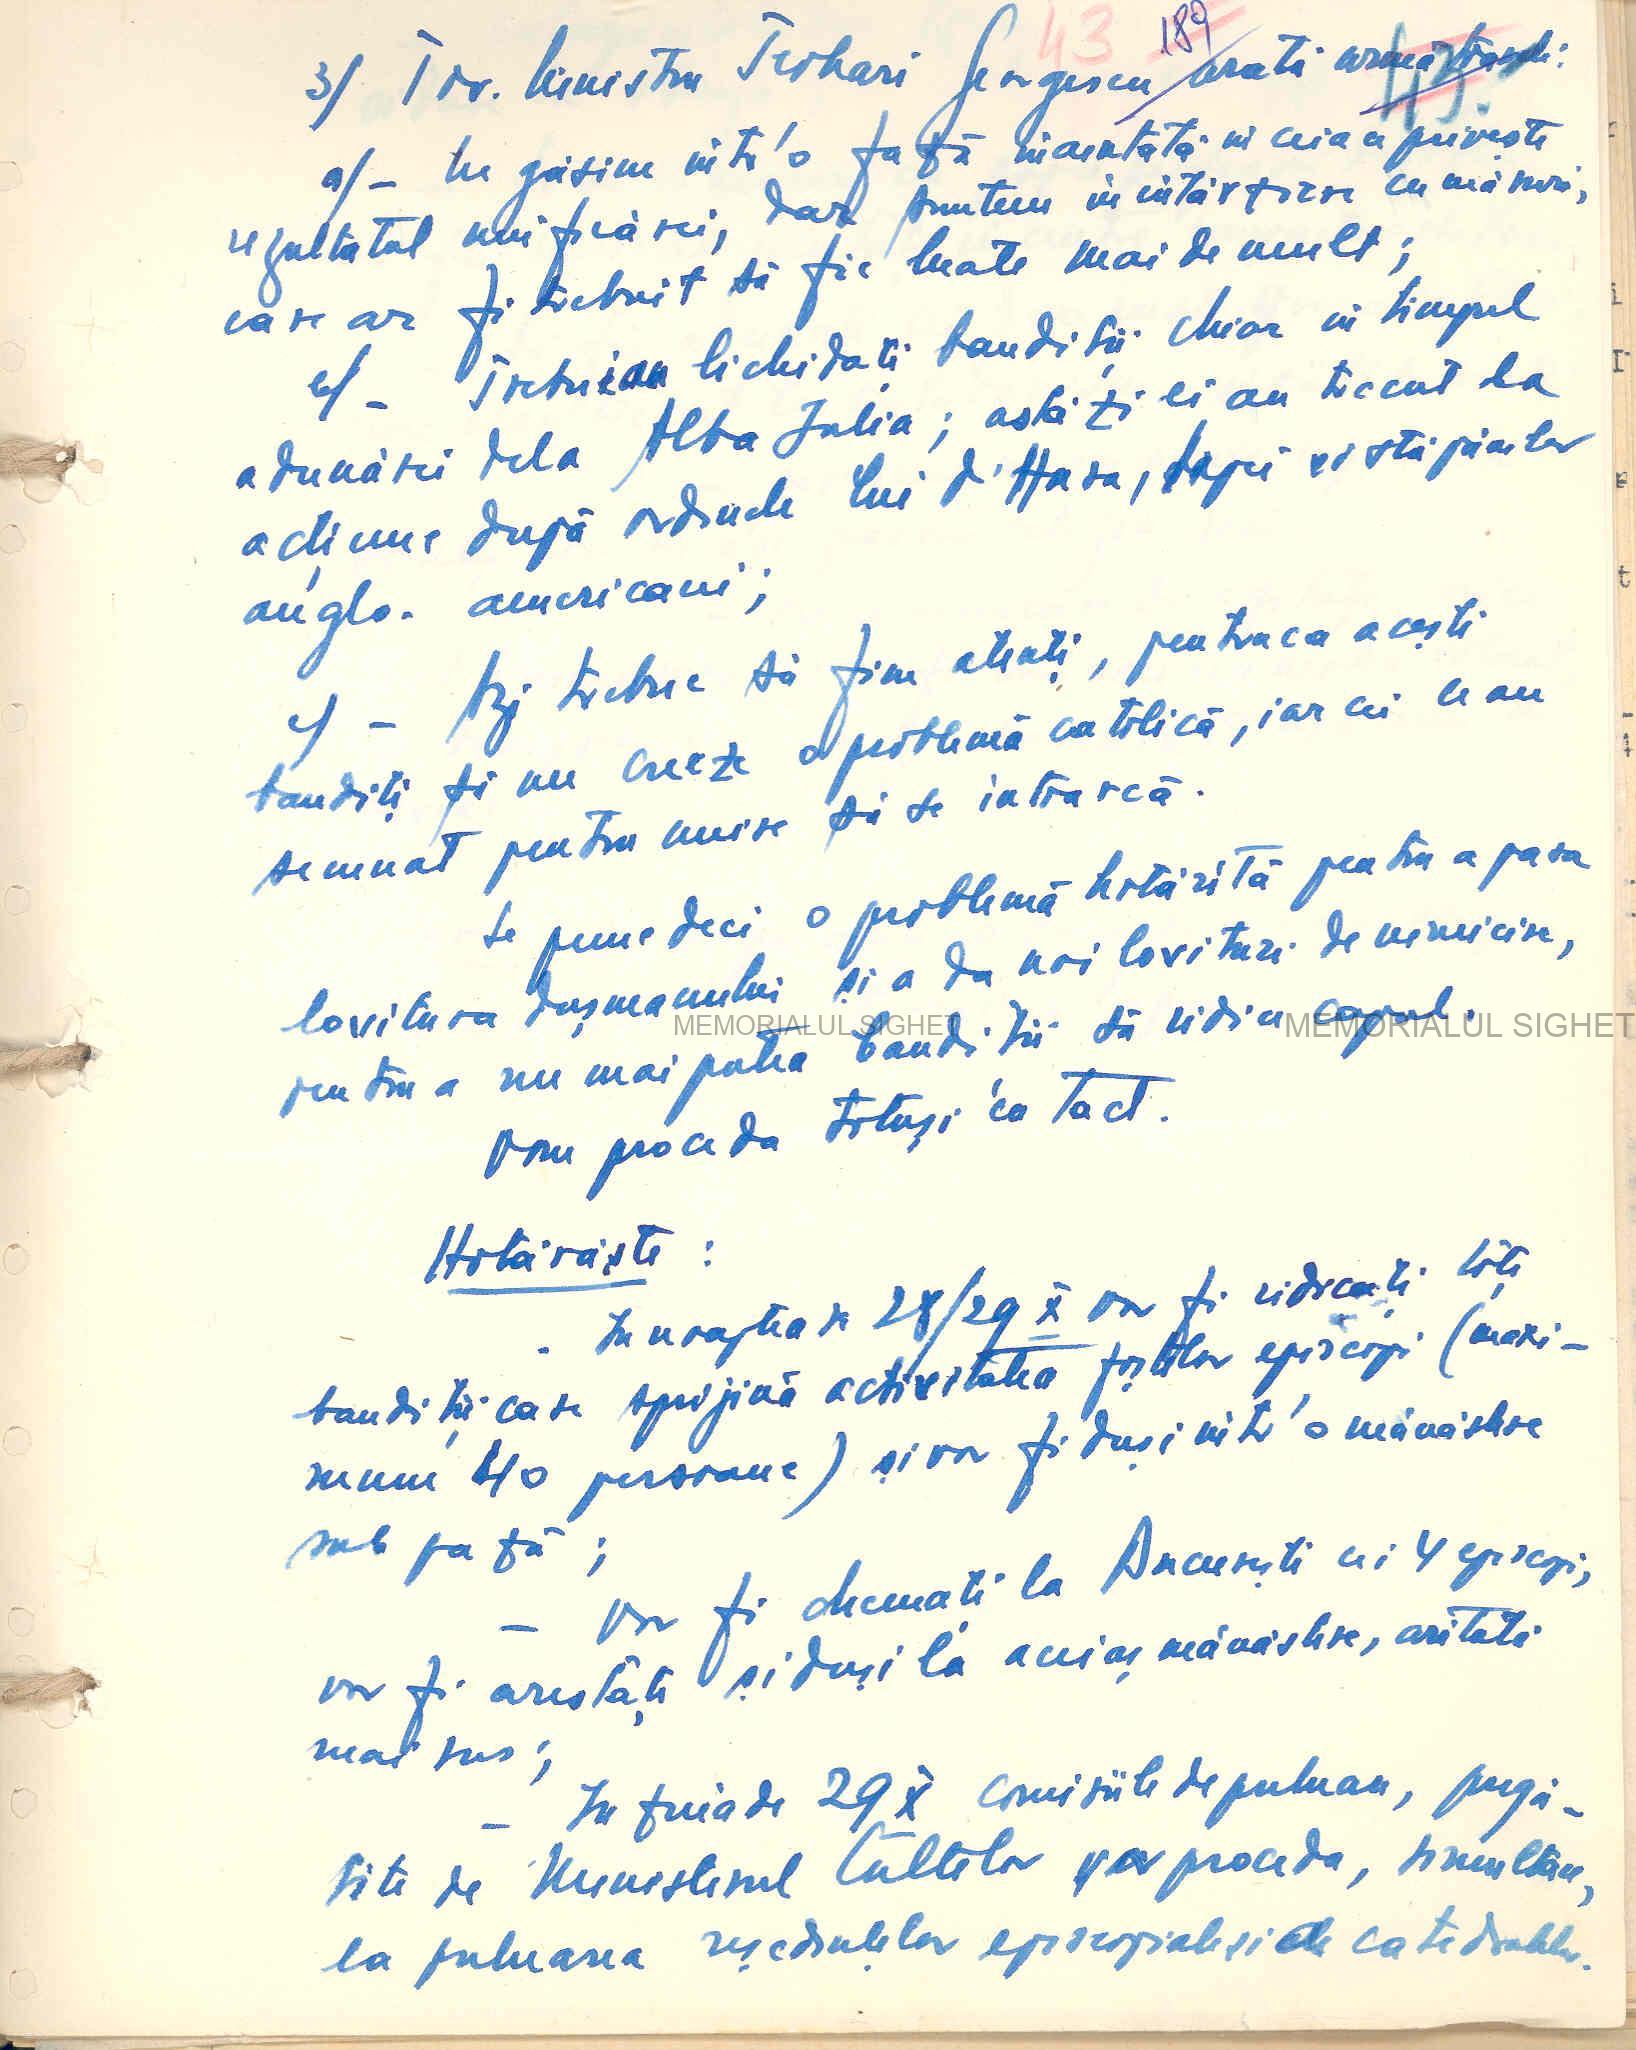 43 189
3/ Tov. Ministru Teohari Georgescu arată următoarele:
43.
a/ – Ne găsim într'o fază înaintată în ceia ce privește
rezultatul unificărei, dar suntem în intârziere cu măsuri,
care ar fi trebuit să fie luate mai de mult;
b/ – Trebuiau lichidați bandiții chiar în timpul
adunărei dela Alba Iulia; astăzi ei au trecut la
acțiune după ordinele lui d'Hara, Papei și stăpânilor
anglo-americani;
c/ – Azi trebue să fim atenți, pentruca acești
bandiți să nu creeze o problemă catolică, iar cei ce au
semnat pentru unire să se întoarcă.
Se pune deci o problemă hotărîtă pentru a para
lovitura dușmanului și a da noi lovituri de nimicire,
MEMORIALUL SIGHET MEMORIALUL SIGHET
pentru a nu mai putea bandiții să ridice capul.
Vom proceda totuși cu tact.
Hotărăște:
– In noaptea de 28/29 X vor fi ridicați toți
bandiții care sprijină activitatea foștilor episcopi (maxi-
mum 40 persoane) și vor fi duși într'o mănăstire
sub pază;
– Vor fi chemați la București cei 4 episcopi,
vor fi arestați și duși la aceiaș mănăstire, arătată
mai sus;
– In ziua de 29 X comisiile de preluare, pregă-
tite de Ministerul Cultelor vor proceda, simultan,
la preluarea reședințelor episcopale și a catedralelor.